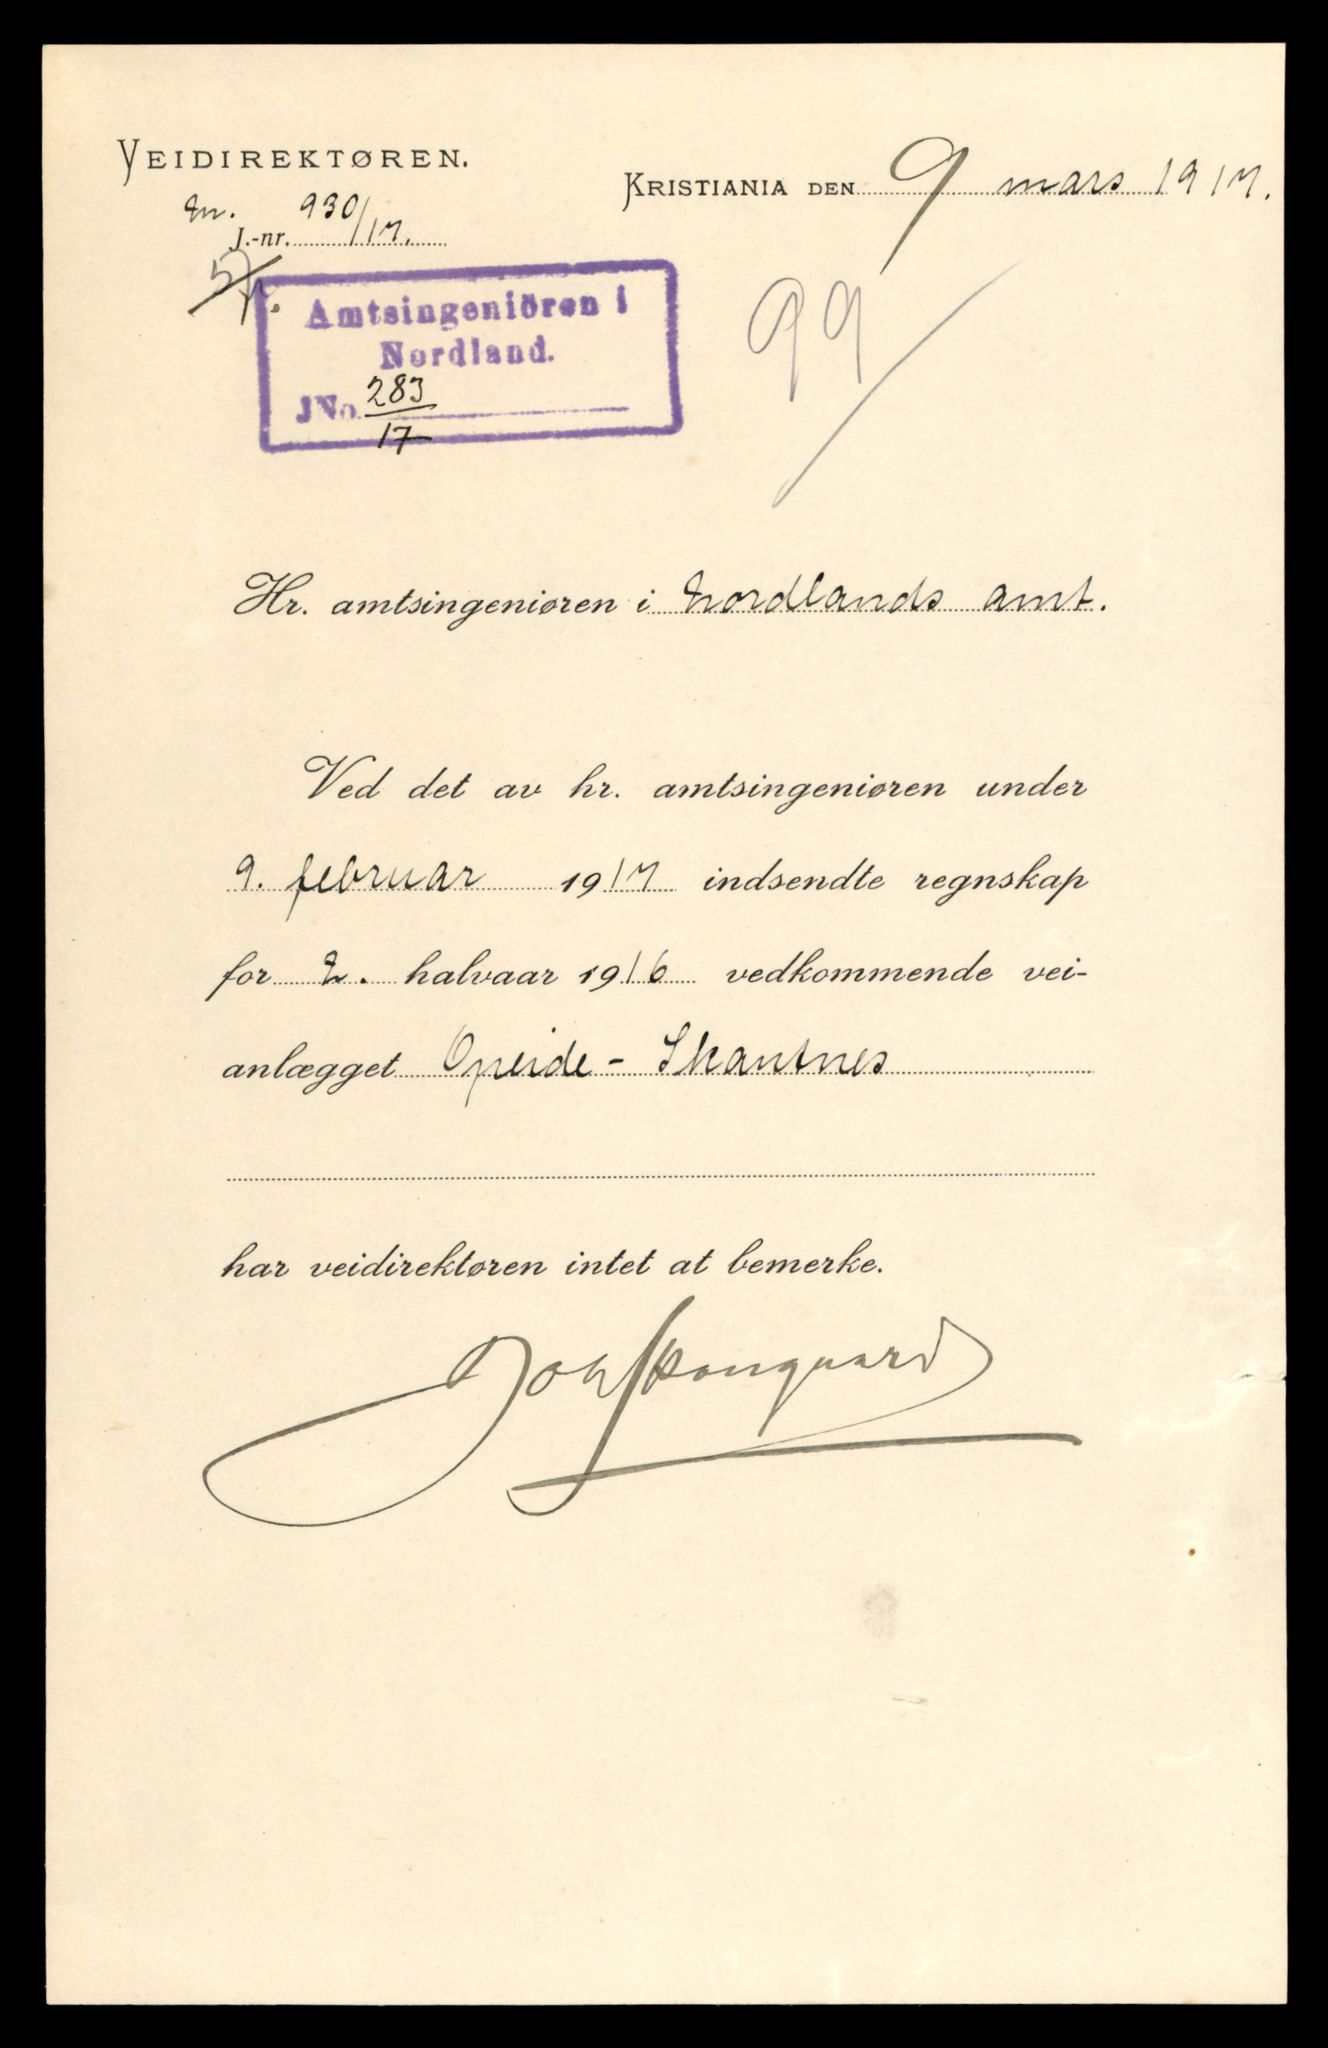 VEIDIREKTØREN.
KRISTIANIA DEN 9 mars 1917.
J.-nr. 930/17.
Amtsingeniören i
Nordland.
JNo. 283
17
99
Hr. amtsingeniøren i Nordlands amt.
Ved det av hr. amtsingeniøren under
9. februar 1917 indsendte regnskap
for 2. halvaar 1916 vedkommende vei-
anlægget Opeide - Skantnes
har veidirektøren intet at bemerke.
Joh Skougaard